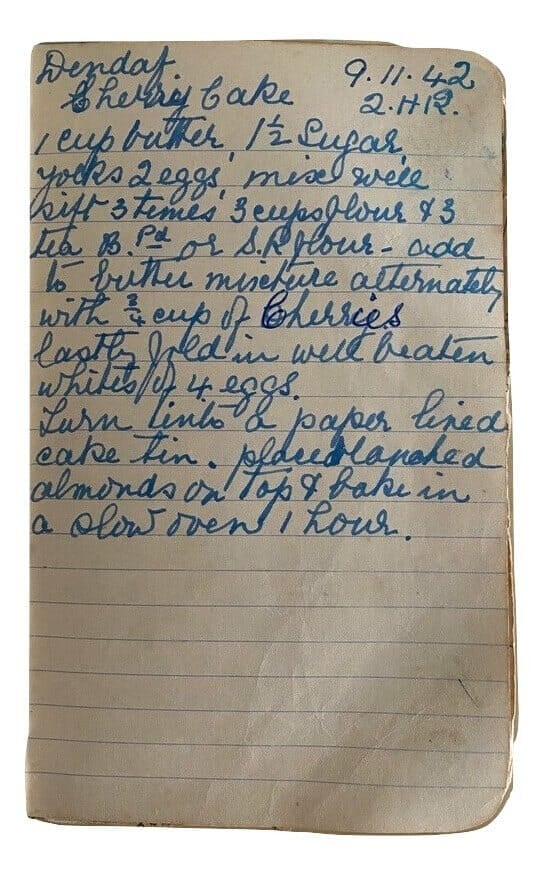 Dendat 9.11.42
Cherry Cake 2.HR.
1 cup butter, 1½ Sugar,
yocks 2 eggs, mix well
sift 3 times 3 cups flour & 3
tea B. Pd or S.R flour - add
to butter mixture alternately
with ¾ cup of Cherries
lastly fold in well beaten
whites of 4 eggs.
Turn into a paper lined
cake tin. place blanched
almonds on top & bake in
a slow oven 1 hour.